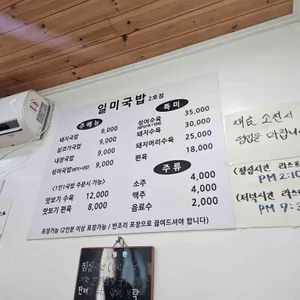 일미국밥 2호점
주메뉴
돼지국밥 9,000
살코기국밥 9,000
내장국밥 9,000
섞어국밥 9,000
<1인1국밥 주문시 가능>
맛보기 수육 12,000
맛보기 편육 8,000
특미
섞어수육 35,000
돼지수육 30,000
돼지머리수육 25,000
편육 18,000
주류
소주 4,000
맥주 4,000
음료수 2,000
포장가능 (2인분 이상 포장가능 / 반조리 포장으로 끓여드셔야 합니다)
재료 소진시
(점심시간 라스트
PM 2:
(저녁시간 라스
PM 7:3